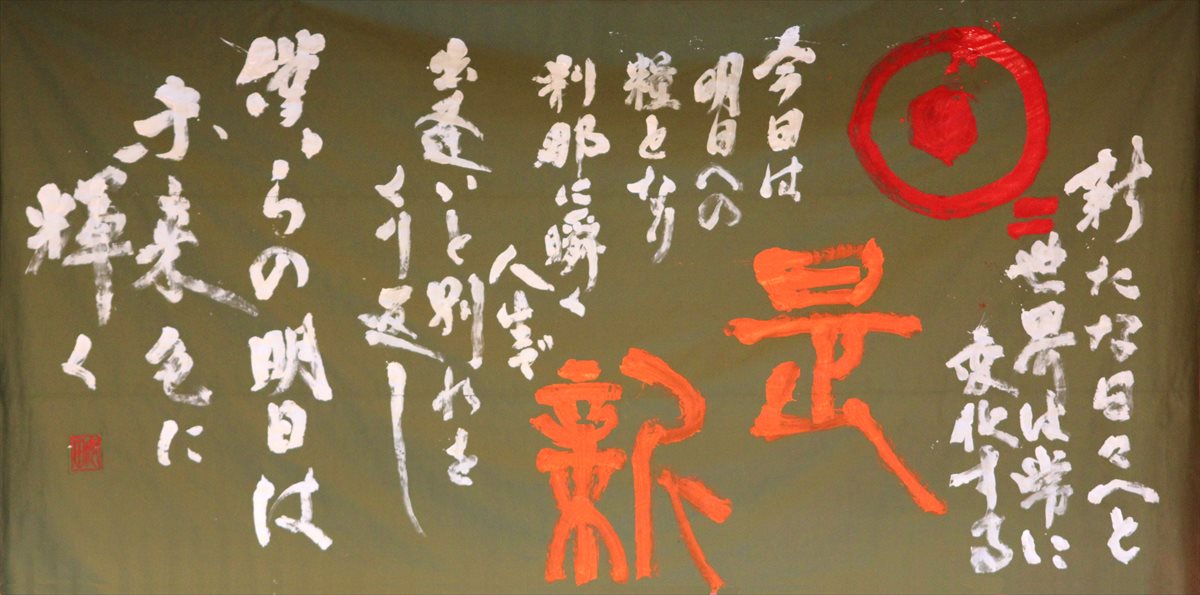 新たな日々へと
世界は常に
変化する
日々是新
今日は
明日への
糧となり
刹那に瞬く
人生で
出逢いと別れを
くり返し
僕らの明日は
未来色に
輝く